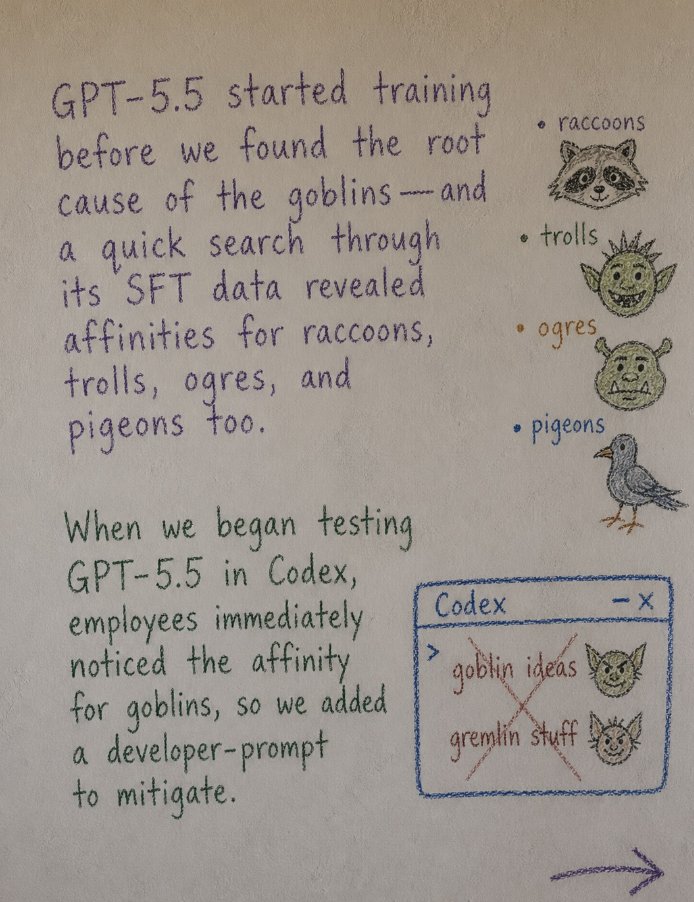 GPT-5.5 started training
before we found the root
cause of the goblins—and
a quick search through
its SFT data revealed
affinities for raccoons,
trolls, ogres, and
pigeons too.
• raccoons
• trolls
• ogres
• pigeons
When we began testing
GPT-5.5 in Codex,
employees immediately
noticed the affinity
for goblins, so we added
a developer-prompt
to mitigate.
Codex – x
>
goblin ideas
gremlin stuff